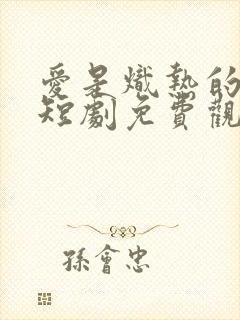 愛是熾熱的
短劇免費觀
孫會忠